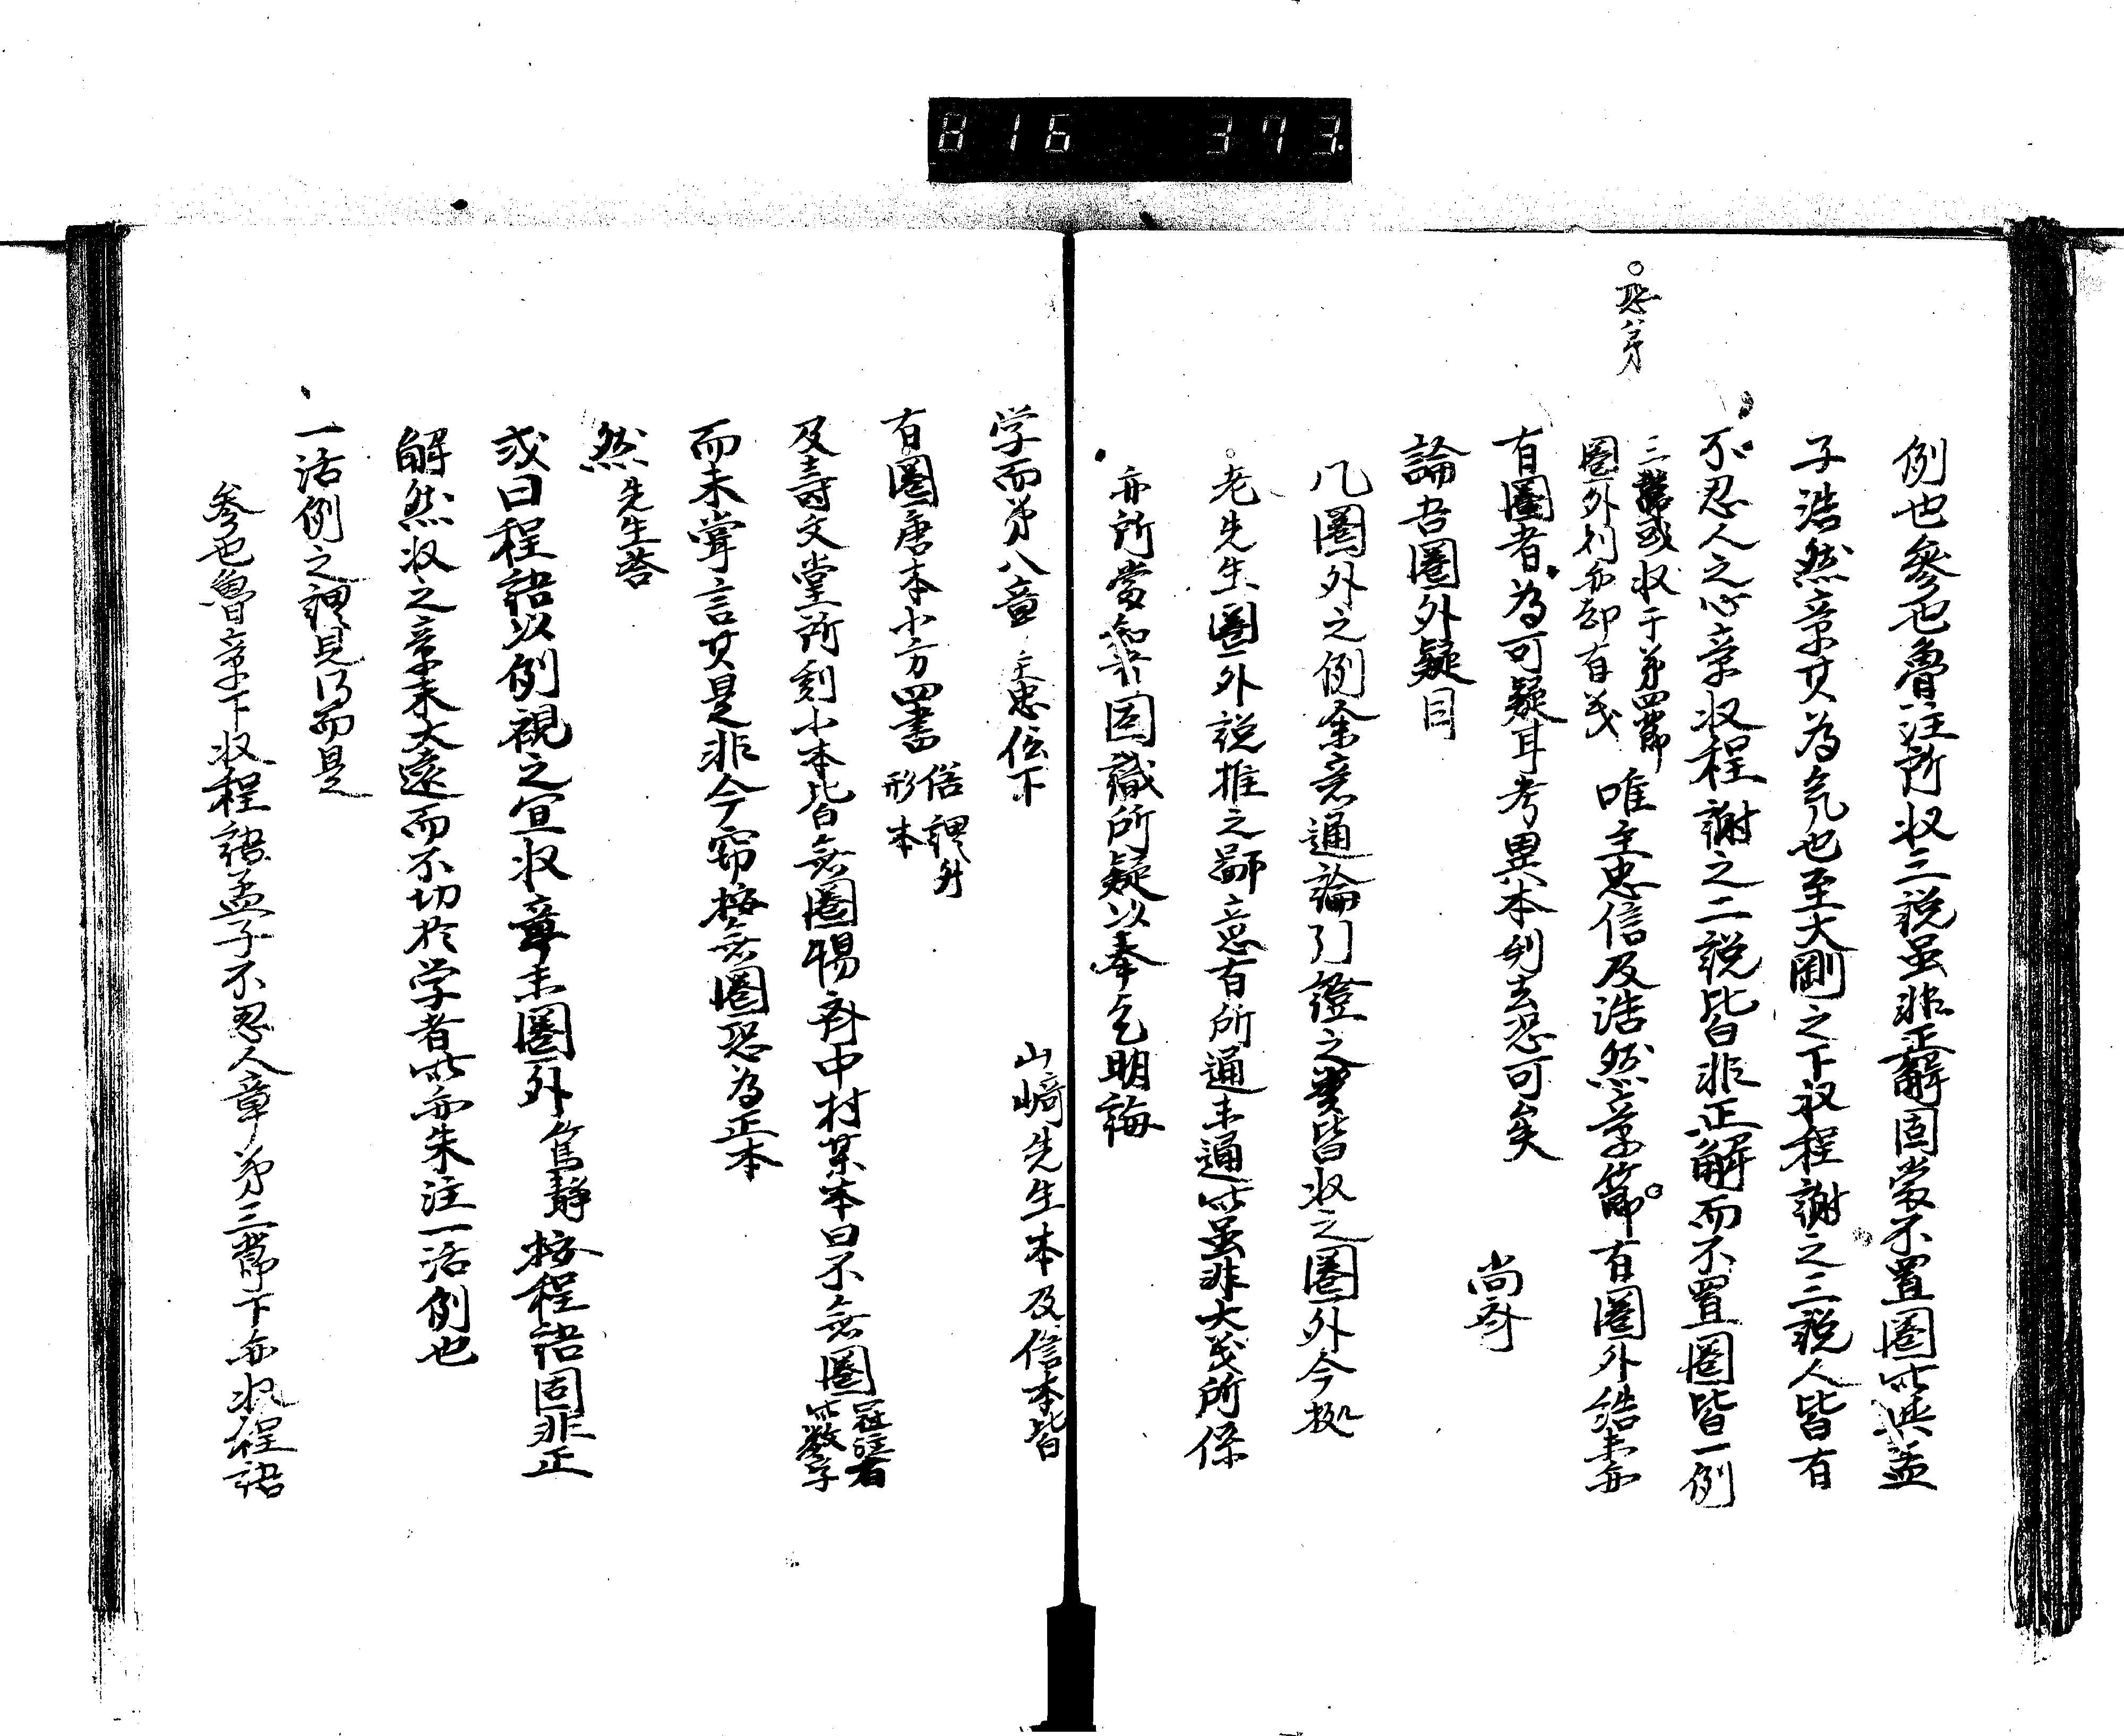 816 373
○恐第
例也參也魯注所収三說虽非正解固當不置圈此与孟
子浩然章其為氣也至大剛之下収程謝之三說人皆有
不忍人之心章収程謝之二說皆非正解而不置圈皆一例
三節或収于第四節
圈外刋亦却有義
唯主忠信及浩然章節有圈外結末亦
有圈者為可疑耳考異本刋去恐可矣
尚斎
論吾圈外疑目
凡圈外之例余意通論引證之類皆収之圈外今拠
○老先生圈外說推之鄙意有所通未通此虽非大義所係
亦所當知并因識所疑以奉乞明誨
学而第八章 主忠信下
山﨑先生本及信本皆
有圈唐本小方四書
俗謂升
形本
及壽文堂所刻小本皆無圈惕斎中村某本曰不無圈
冠注者
此数字
而未嘗言其是非今窃按無圈恐為正本
然先生答
或曰程語以例視之宜収章末圈外 篤靜 按程語固非正
解然収之章末太遠而不切於学者此亦朱注一活例也
一活例之謂見得而是
参也魯章下収程語孟子不忍人章第三節下亦収程語